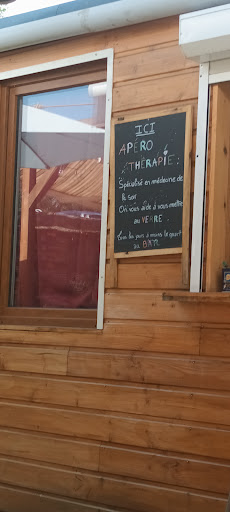 ICI
APÉRO
THÉRAPIE :
Spécialisé en médecine de
le soir
On vous aide à vous mettre
au VERRE.
Tous les jours à moins le quart
au BAR.